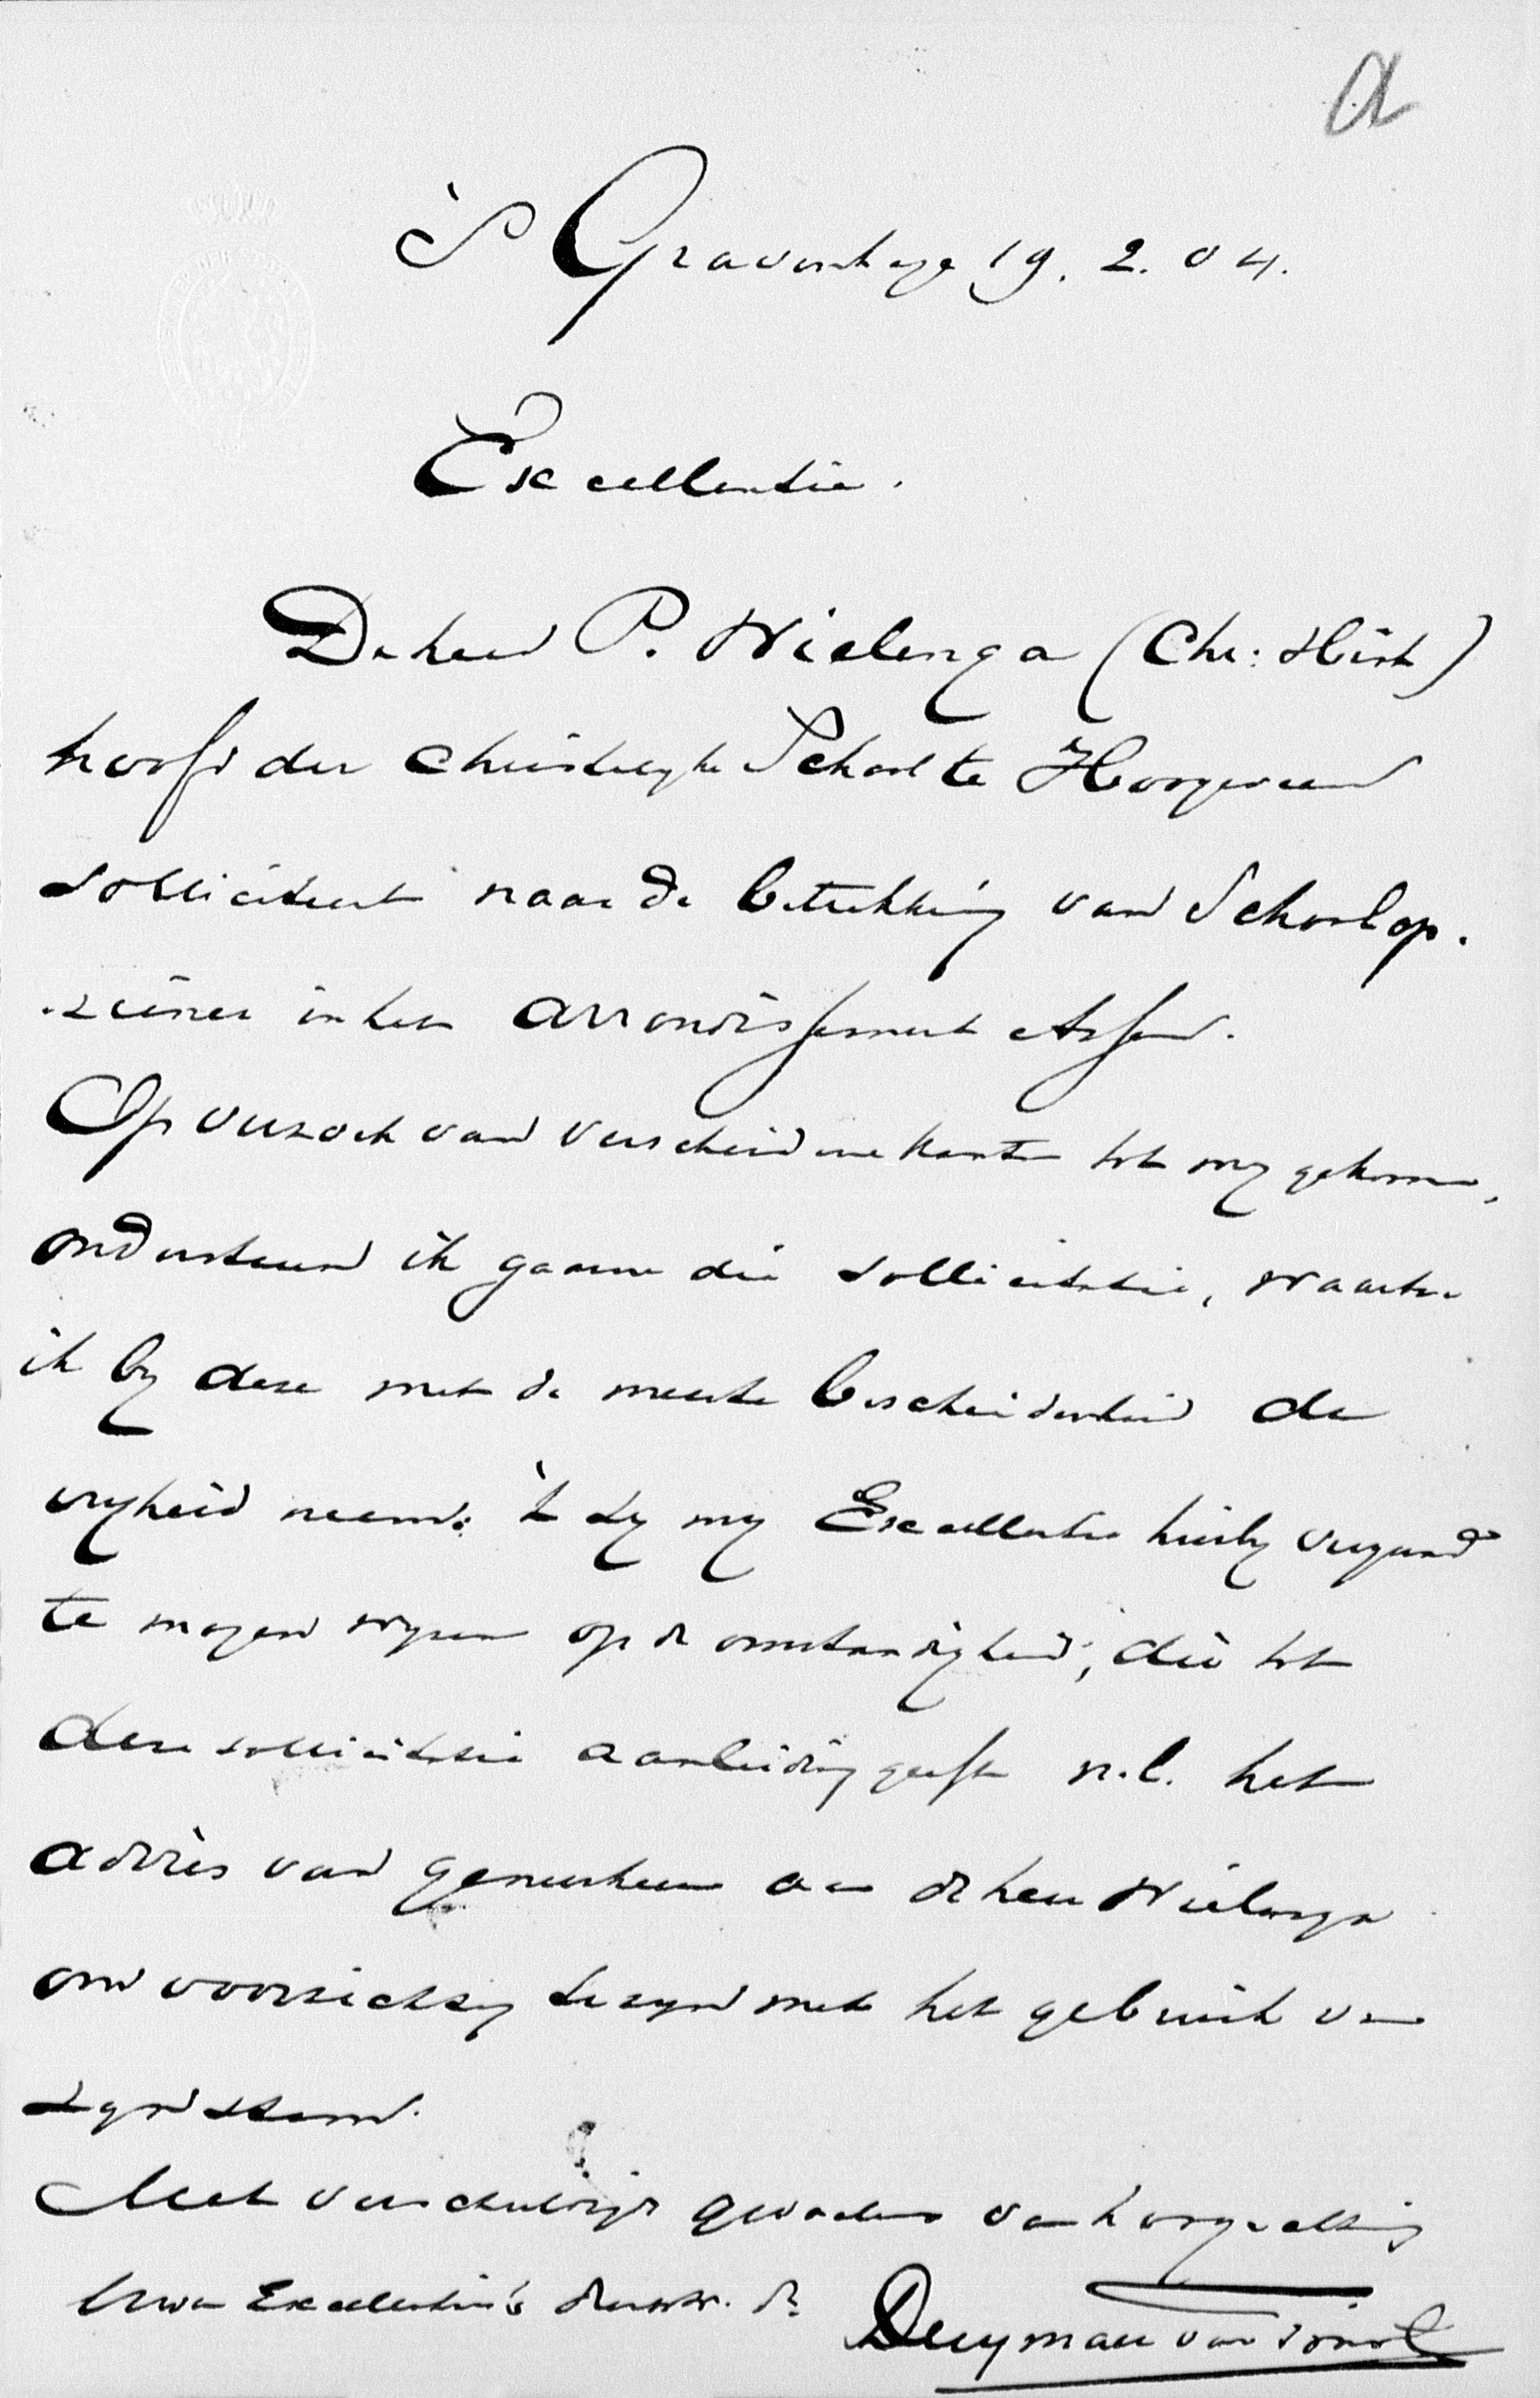 a
'S Gravenhage 19. 2. 04.
Excellentie.
De heer P. Wielenga (Chr: Hist)
hoofd der Christelyke School te Hoogeveen
solliciteert naar de betrekking van Schoolop.
.ziener in het arrondissement Assen.
Op verzoek van verscheidene kanten tot my gekomen,
ondersteun ik gaarne die sollicitatie, waartoe
ik by deze met de meeste bescheidenheid de
vryheid neem; 't zy my Excellentie hierby vergund
te mogen wyzen op de omstandigheid, die tot
deze sollicitatie aanleiding geeft n.l. het
advies van geneesheeren aan de heer Wielenga
om voorzichtig te zyn met het gebruik van
zyn stem.
Met verschuldigde gevoelens van hoogachting
Uwer Excellentie's dienstw. dr
Duymaer van Twist